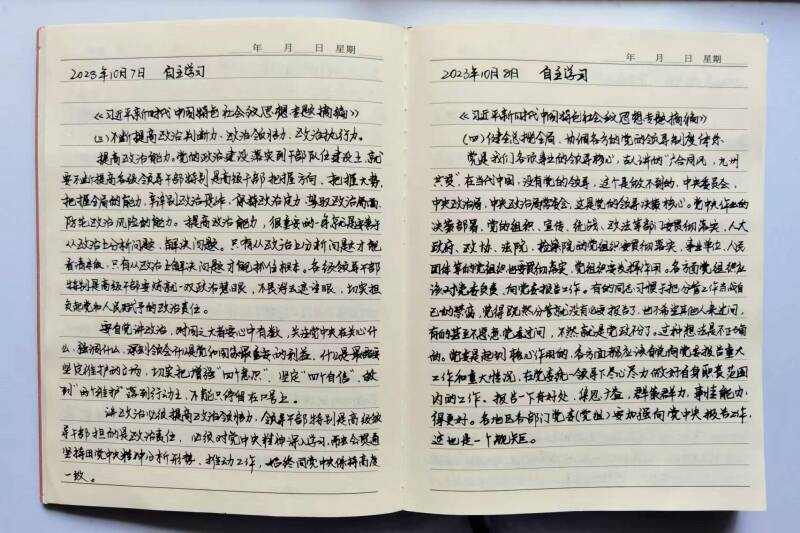 年 月 日 星期
2023年10月7日 自主学习
《习近平新时代中国特色社会主义思想专题摘编》
(三)不断提高政治判断力、政治领悟力、政治执行力。
提高政治能力。党的政治建设落实到干部队伍建设上,就
要不断提高各级领导干部特别是高级干部把握方向、把握大势、
把握全局的能力,辨别政治是非、保持政治定力、驾驭政治局面、
防范政治风险的能力。提高政治能力,很重要的一条就是要善于
从政治上分析问题、解决问题。只有从政治上分析问题才能
看清本质,只有从政治上解决问题才能抓住根本。各级领导干部
特别是高级干部要炼就一双政治慧眼,不畏浮云遮望眼,切实担
负起党和人民赋予的政治责任。
要自觉讲政治,对国之大者要心中有数,关注党中央在关心什
么、强调什么,深刻领会什么是党和国家最重要的利益、什么是最需要
坚定维护的立场,切实把增强"四个意识"、坚定"四个自信"、做
到"两个维护"落到行动上,不能只停留在口号上。
讲政治必须提高政治领悟力,领导干部特别是高级领
导干部担的是政治责任,必须对党中央精神深入学习、融会贯通
坚持用党中央精神分析形势、推动工作,始终同党中央保持高度
一致。
年 月 日 星期
2023年10月8日 自主学习
《习近平新时代中国特色社会主义思想专题摘编》
(四)健全总揽全局、协调各方的党的领导制度体系
党是我们各项事业的领导核心,古人讲的"六合同风,九州
共贯",在当代中国,没有党的领导,这个是做不到的,中央委员会,
中央政治局,中央政治局常委会,这是党的领导决策核心。党中央作出的
决策部署,党的组织、宣传、统战、政法等部门要贯彻落实,人大
政府、政协、法院、检察院的党组织要贯彻落实,事业单位、人民
团体等的党组织也要贯彻落实,党组织要发挥作用。各方面党组织应
该对党委负责、向党委报告工作。有的同志习惯于把分管工作当成自
己的禁脔,觉得既然分管就没有必要报告了,也不希望其他人来过问,
有的甚至不愿意党委过问,不然就是党政不分了。这种想法是不正确
的。党委是起领导核心作用的,各方面都应该自觉向党委报告重大
工作和重大情况,在党委统一领导下尽心尽力做好自身职责范围
内的工作。报告一下有好处,集思广益,群策群力,事情能办
得更好。各地区各部门党委(党组)要加强向党中央报告工作,
这也是一个规矩。